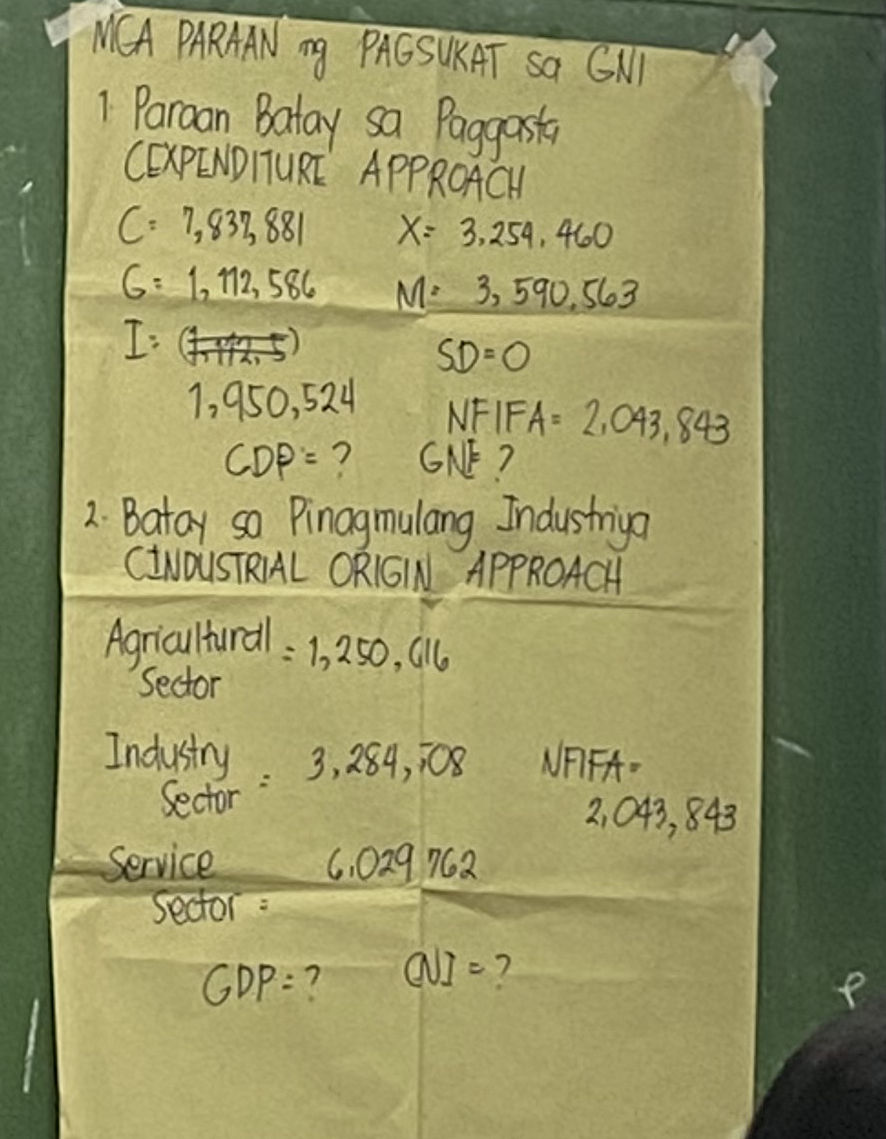 MGA PARAAN ng PAGSUKAT sa GNI
1. Paraan Batay sa Paggasta
(EXPENDITURE APPROACH
C= 7,837,881 X= 3,254,460
G= 1,112,586 M= 3,590,563
I= (1,112,5)
SD=0
1,950,524
NFIFA= 2,043,843
GDP = ? GNI= ?
2. Batay sa Pinagmulang Industriya
(INDUSTRIAL ORIGIN APPROACH
Agricultural = 1,250,616
Sector
Industry = 3,284,508 NFIFA=
Sector 2,043,843
Service 6,029,762
Sector =
GDP = ? GNI = ?